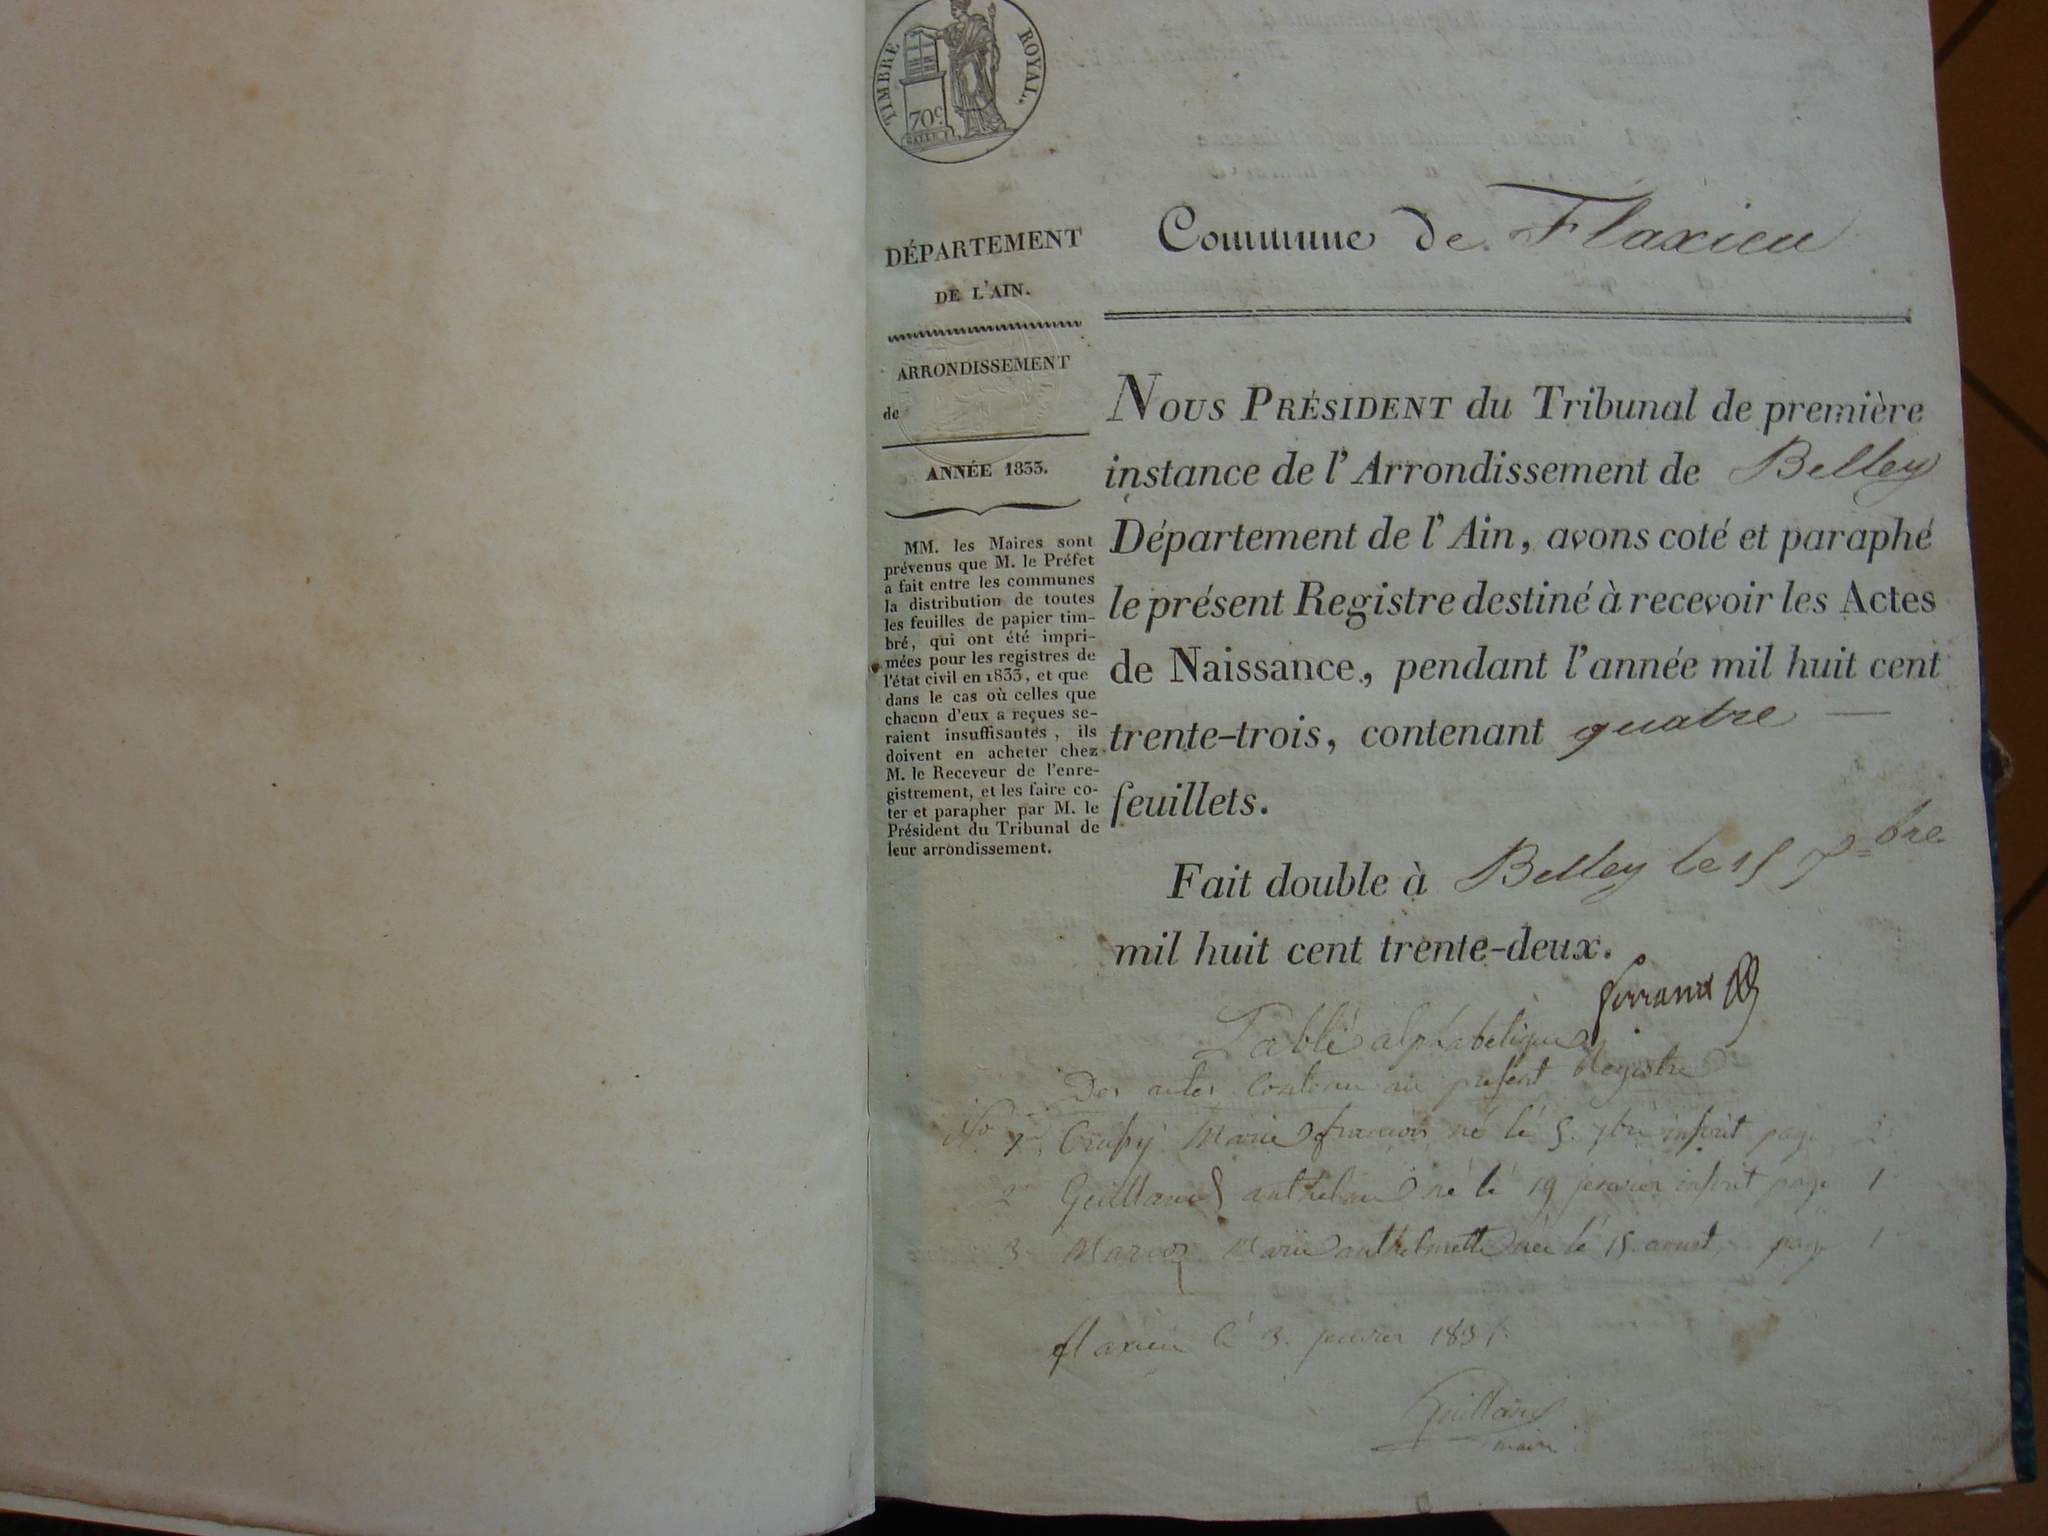 TIMBRE ROYAL.
70 c.
DÉPARTEMENT
DE L'AIN.
ARRONDISSEMENT
de
ANNÉE 1833.
MM. les Maires sont
prévenus que M. le Préfet
a fait entre les communes
la distribution de toutes
les feuilles de papier tim-
bré, qui ont été impri-
mées pour les registres de
l'état civil en 1833, et que
dans le cas où celles que
chacun d'eux a reçues se-
raient insuffisantes, ils
doivent en acheter chez
M. le Receveur de l'enre-
gistrement, et les faire co-
ter et parapher par M. le
Président du Tribunal de
leur arrondissement.
Commune de Flaxieu
NOUS PRÉSIDENT du Tribunal de première
instance de l'Arrondissement de Belley
Département de l'Ain, avons coté et paraphé
le présent Registre destiné à recevoir les Actes
de Naissance, pendant l'année mil huit cent
trente-trois, contenant quatre —
feuillets.
Fait double à Belley le 15 7bre
mil huit cent trente-deux.
Table alphabetique
Des actes Contenu au present Registre
No 1 Marie francois né le 5. 7bre inscrit page 2
2 Guilland anthelme né le 19 janvier inscrit page 1
3 Marie anthelmette née le 15 aoust page 1
flaxieu le 3. janvier
Guilland
maire